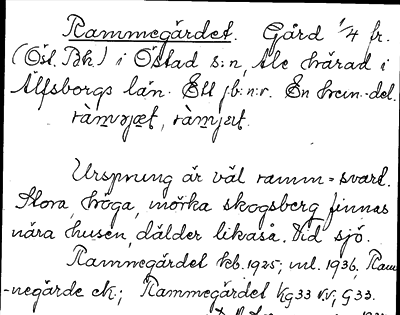 Rammegärdet. Gård 1/4 fr.
(Östl. Bk.) i Östad s:n, Ale härad i
Älfsborgs län. Ett jb:n:r. En hem.-del.
Ursprung är väl ramm = svart.
Stora, höga, mörka skogsberg finnas
nära husen, dälder likaså. Vid sjö.
Rammegärdet kb. 1925; ml. 1936, Ram
-negärde ek.; Rammegärdet Kg33 r.v.; G33.